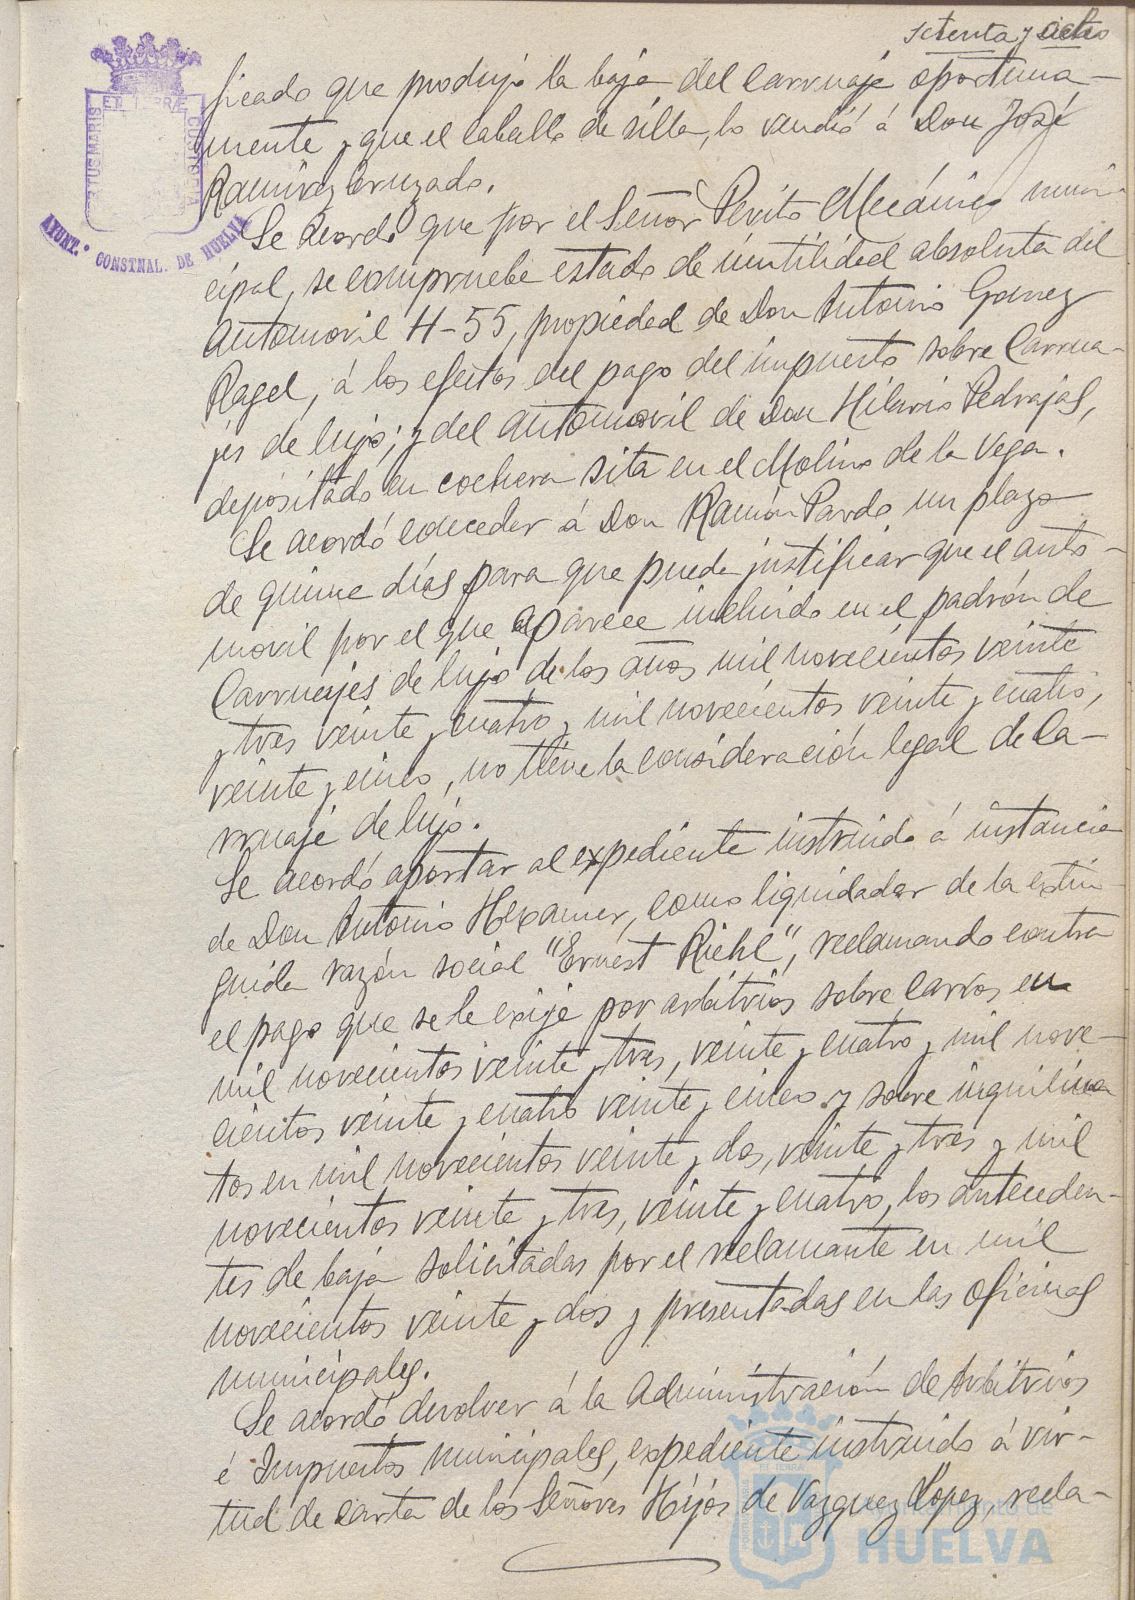 setenta y ocho
PORTUS MARIS ET TERRÆ CUSTODIA
AYUNT.º CONSTNAL. DE HUELVA
ficado que produjo la baja del carruaje oportuna-
mente y que el caballo de silla, lo vendió á Don José
Ramírez Cruzado.
Se acordó que por el Señor Perito Mecánico muni-
cipal, se compruebe estado de inutilidad absoluta del
automovil H-55, propiedad de Don Antonio Gomez
Ragel, á los efectos del pago del impuesto sobre Carrua-
jes de lujo; y del automovil de Don Hilario Pedrajas,
depositado en cochera sita en el Molino de la Vega.
Se acordó conceder á Don Ramón Pardo un plazo
de quince días para que puede justificar que el auto-
movil por el que aparece incluido en el padrón de
Carruajes de lujo de los años mil novecientos veinte
y tres veinte y cuatro y mil novecientos veinte y cuatro,
veinte y cinco, no tiene la consideración legal de Ca-
rruaje de lujo.
Se acordó aportar al expediente instruido á instancia
de Don Antonio Hexamer, como liquidador de la extin-
guida razón social "Ernest Riehl", reclamando contra
el pago que se le exije por arbitrios sobre carros en
mil novecientos veinte y tres, veinte y cuatro y mil nove-
cientos veinte y cuatro veinte y cinco y sobre inquilina
tos en mil novecientos veinte y dos, veinte y tres y mil
novecientos veinte y tres, veinte y cuatro, los anteceden-
tes de baja solicitadas por el reclamante en mil
novecientos veinte y dos y presentadas en las oficinas
municipales.
Se acordó devolver á la Administración de Arbitrios
é Impuestos municipales, expediente instruido á vir-
tud de carta de los Señores Hijos de Vazquez Lopez, recla-
Ayuntamiento de
HUELVA